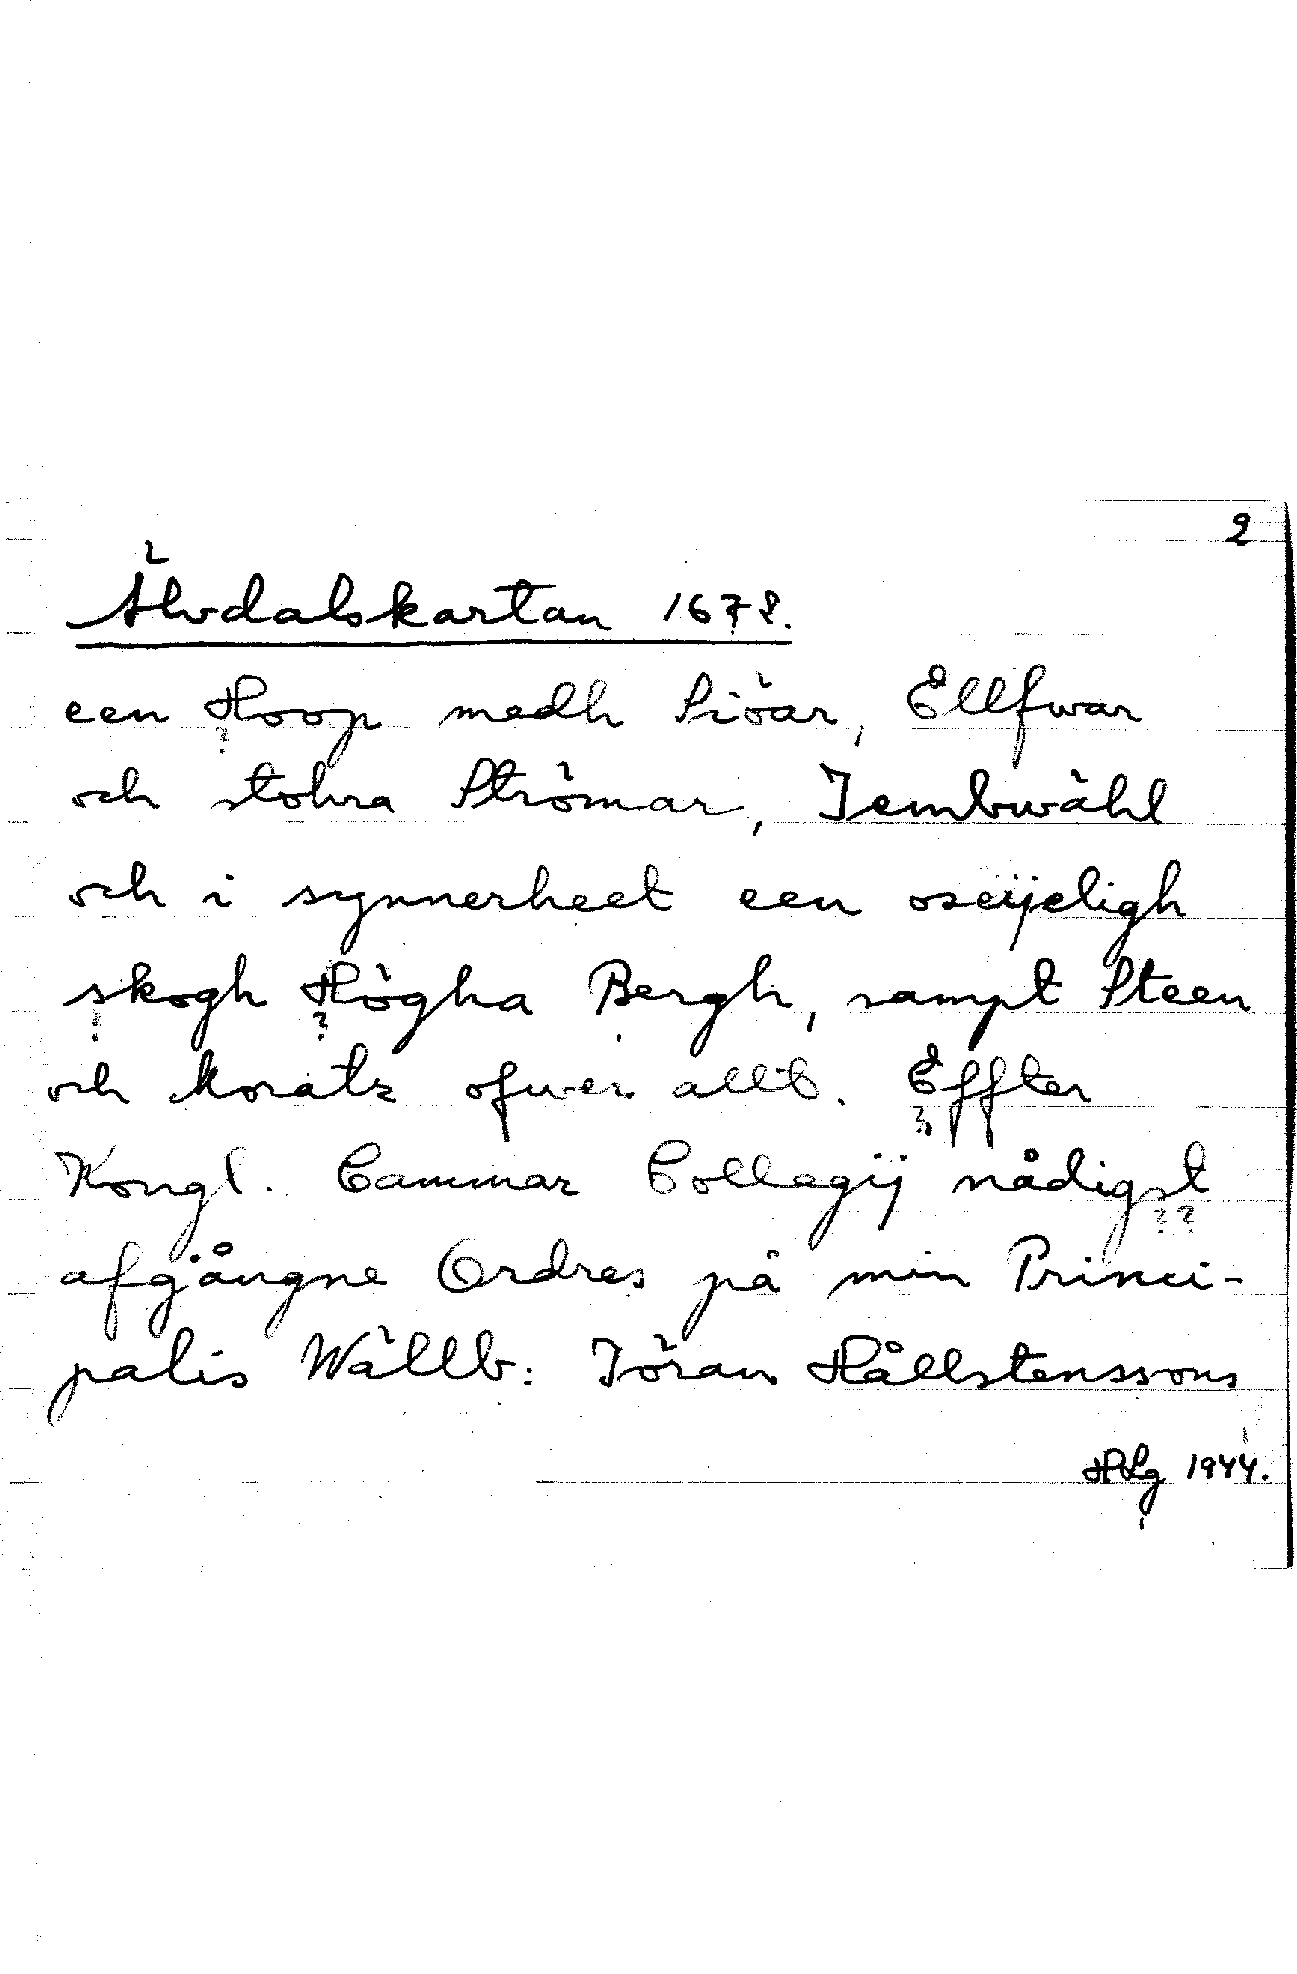 2
Älvdalskartan 1678.
een Hoop medh Siöar, Ellfwar
?
och stohra Strömar, Jembwähl
och i synnerheet een oseijeligh
skogh Högha Bergh, sampt Steen
? ?
och Moratz ofwer allt. Effter
?
Kongl. Cammar Collegij nådigst
? ?
afgångne Ordres på min Princi-
palis Wällb: Jöran Hållstenssons
HLg 1944.